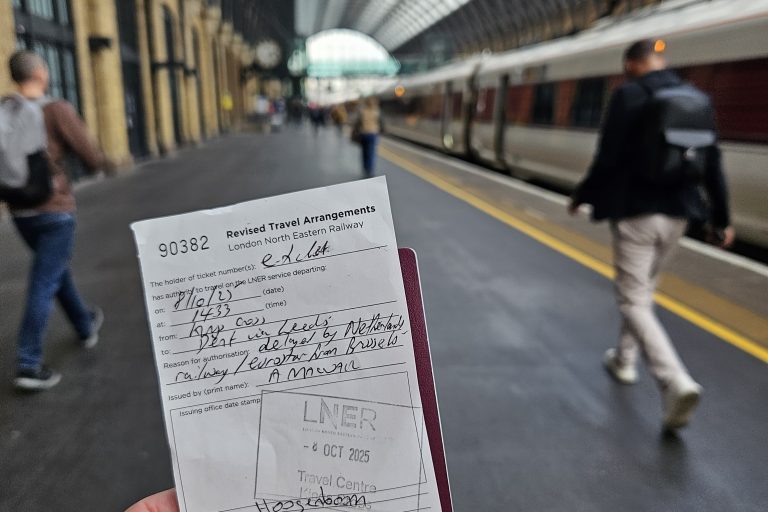 90382
Revised Travel Arrangements
London North Eastern Railway
The holder of ticket number(s):
has authority to travel on the LNER service departing:
on: 8/10/25 (date)
at: 1433 (time)
from: Kings Cross
to: Dent via Leeds
Reason for authorisation: delayed by Netherlands
railway / eurostar from Brussels.
Issued by (print name): A
Issuing office date stamp
LNER
- 8 OCT 2025
Travel Centre
Hoogenboom